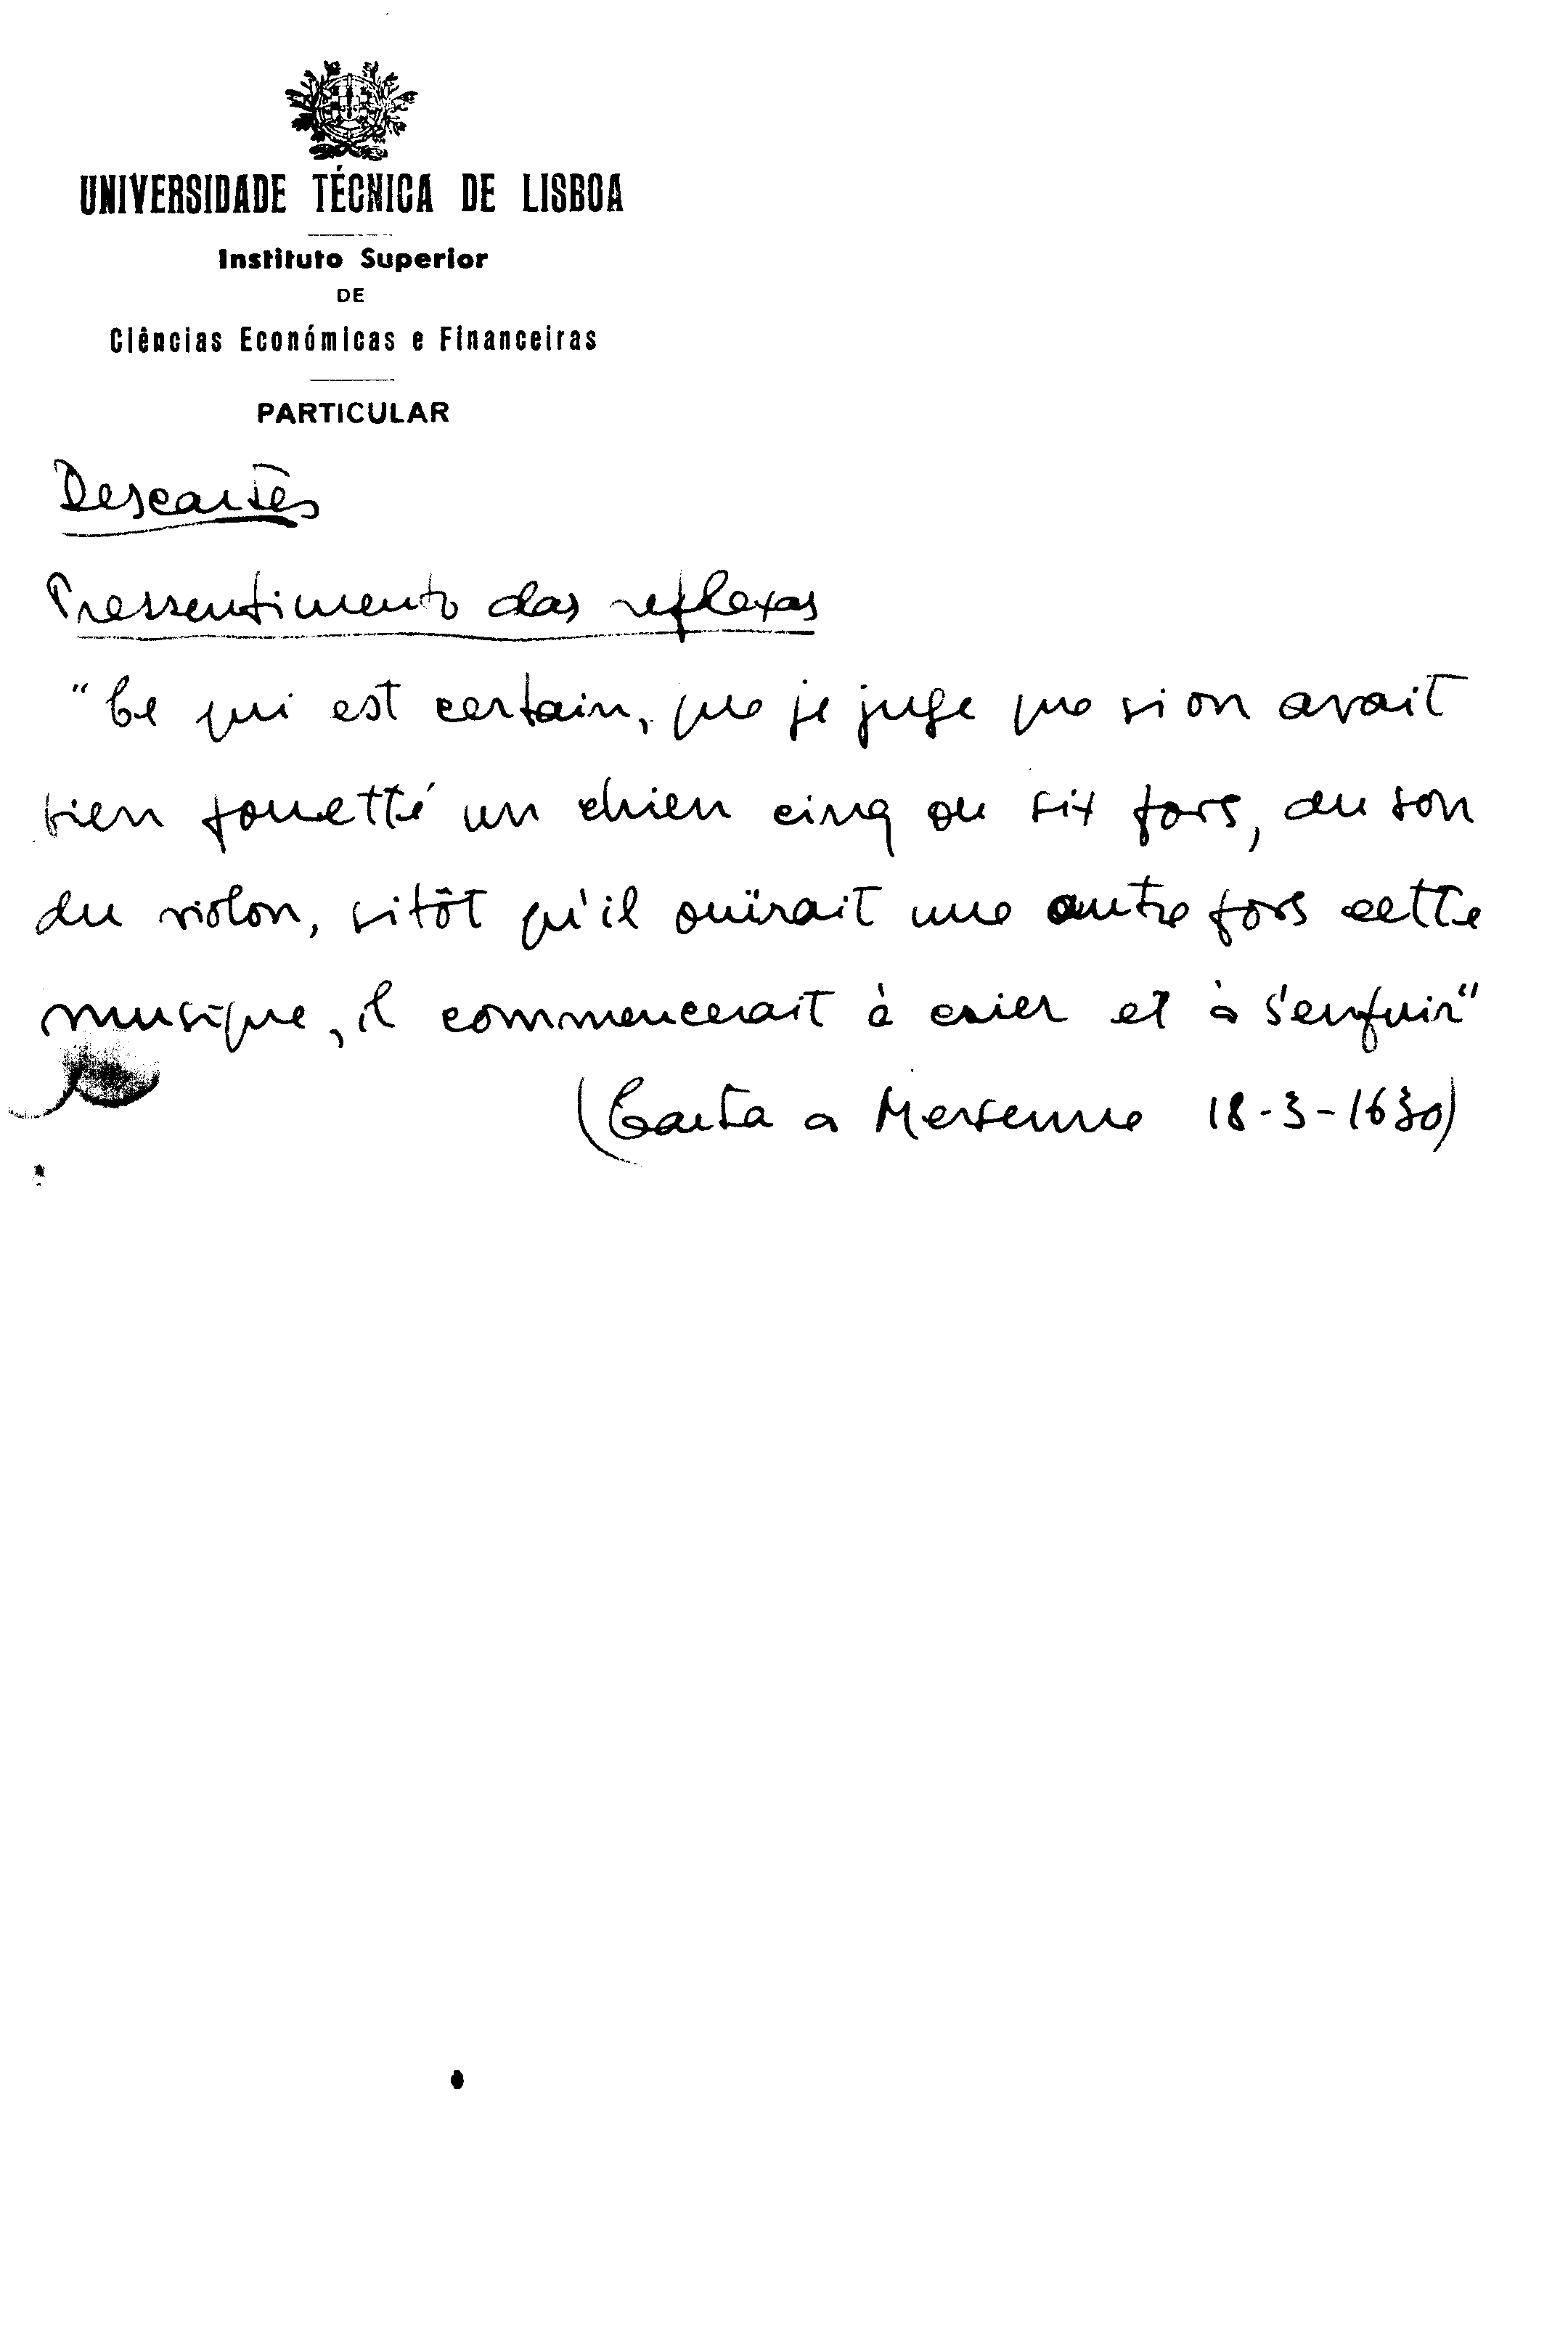 UNIVERSIDADE TÉCNICA DE LISBOA
Instituto Superior
DE
Ciências Económicas e Financeiras
PARTICULAR
Descartes
Pressentimento das reflexas
"Ce qui est certain, que je juge que si on avait
bien fouetté un chien cinq ou six fois, au son
du violon, sitôt qu'il ouïrait une autre fois cette
musique, il commencerait à crier et à s'enfuir"
(Carta a Mersenne 18-3-1630)